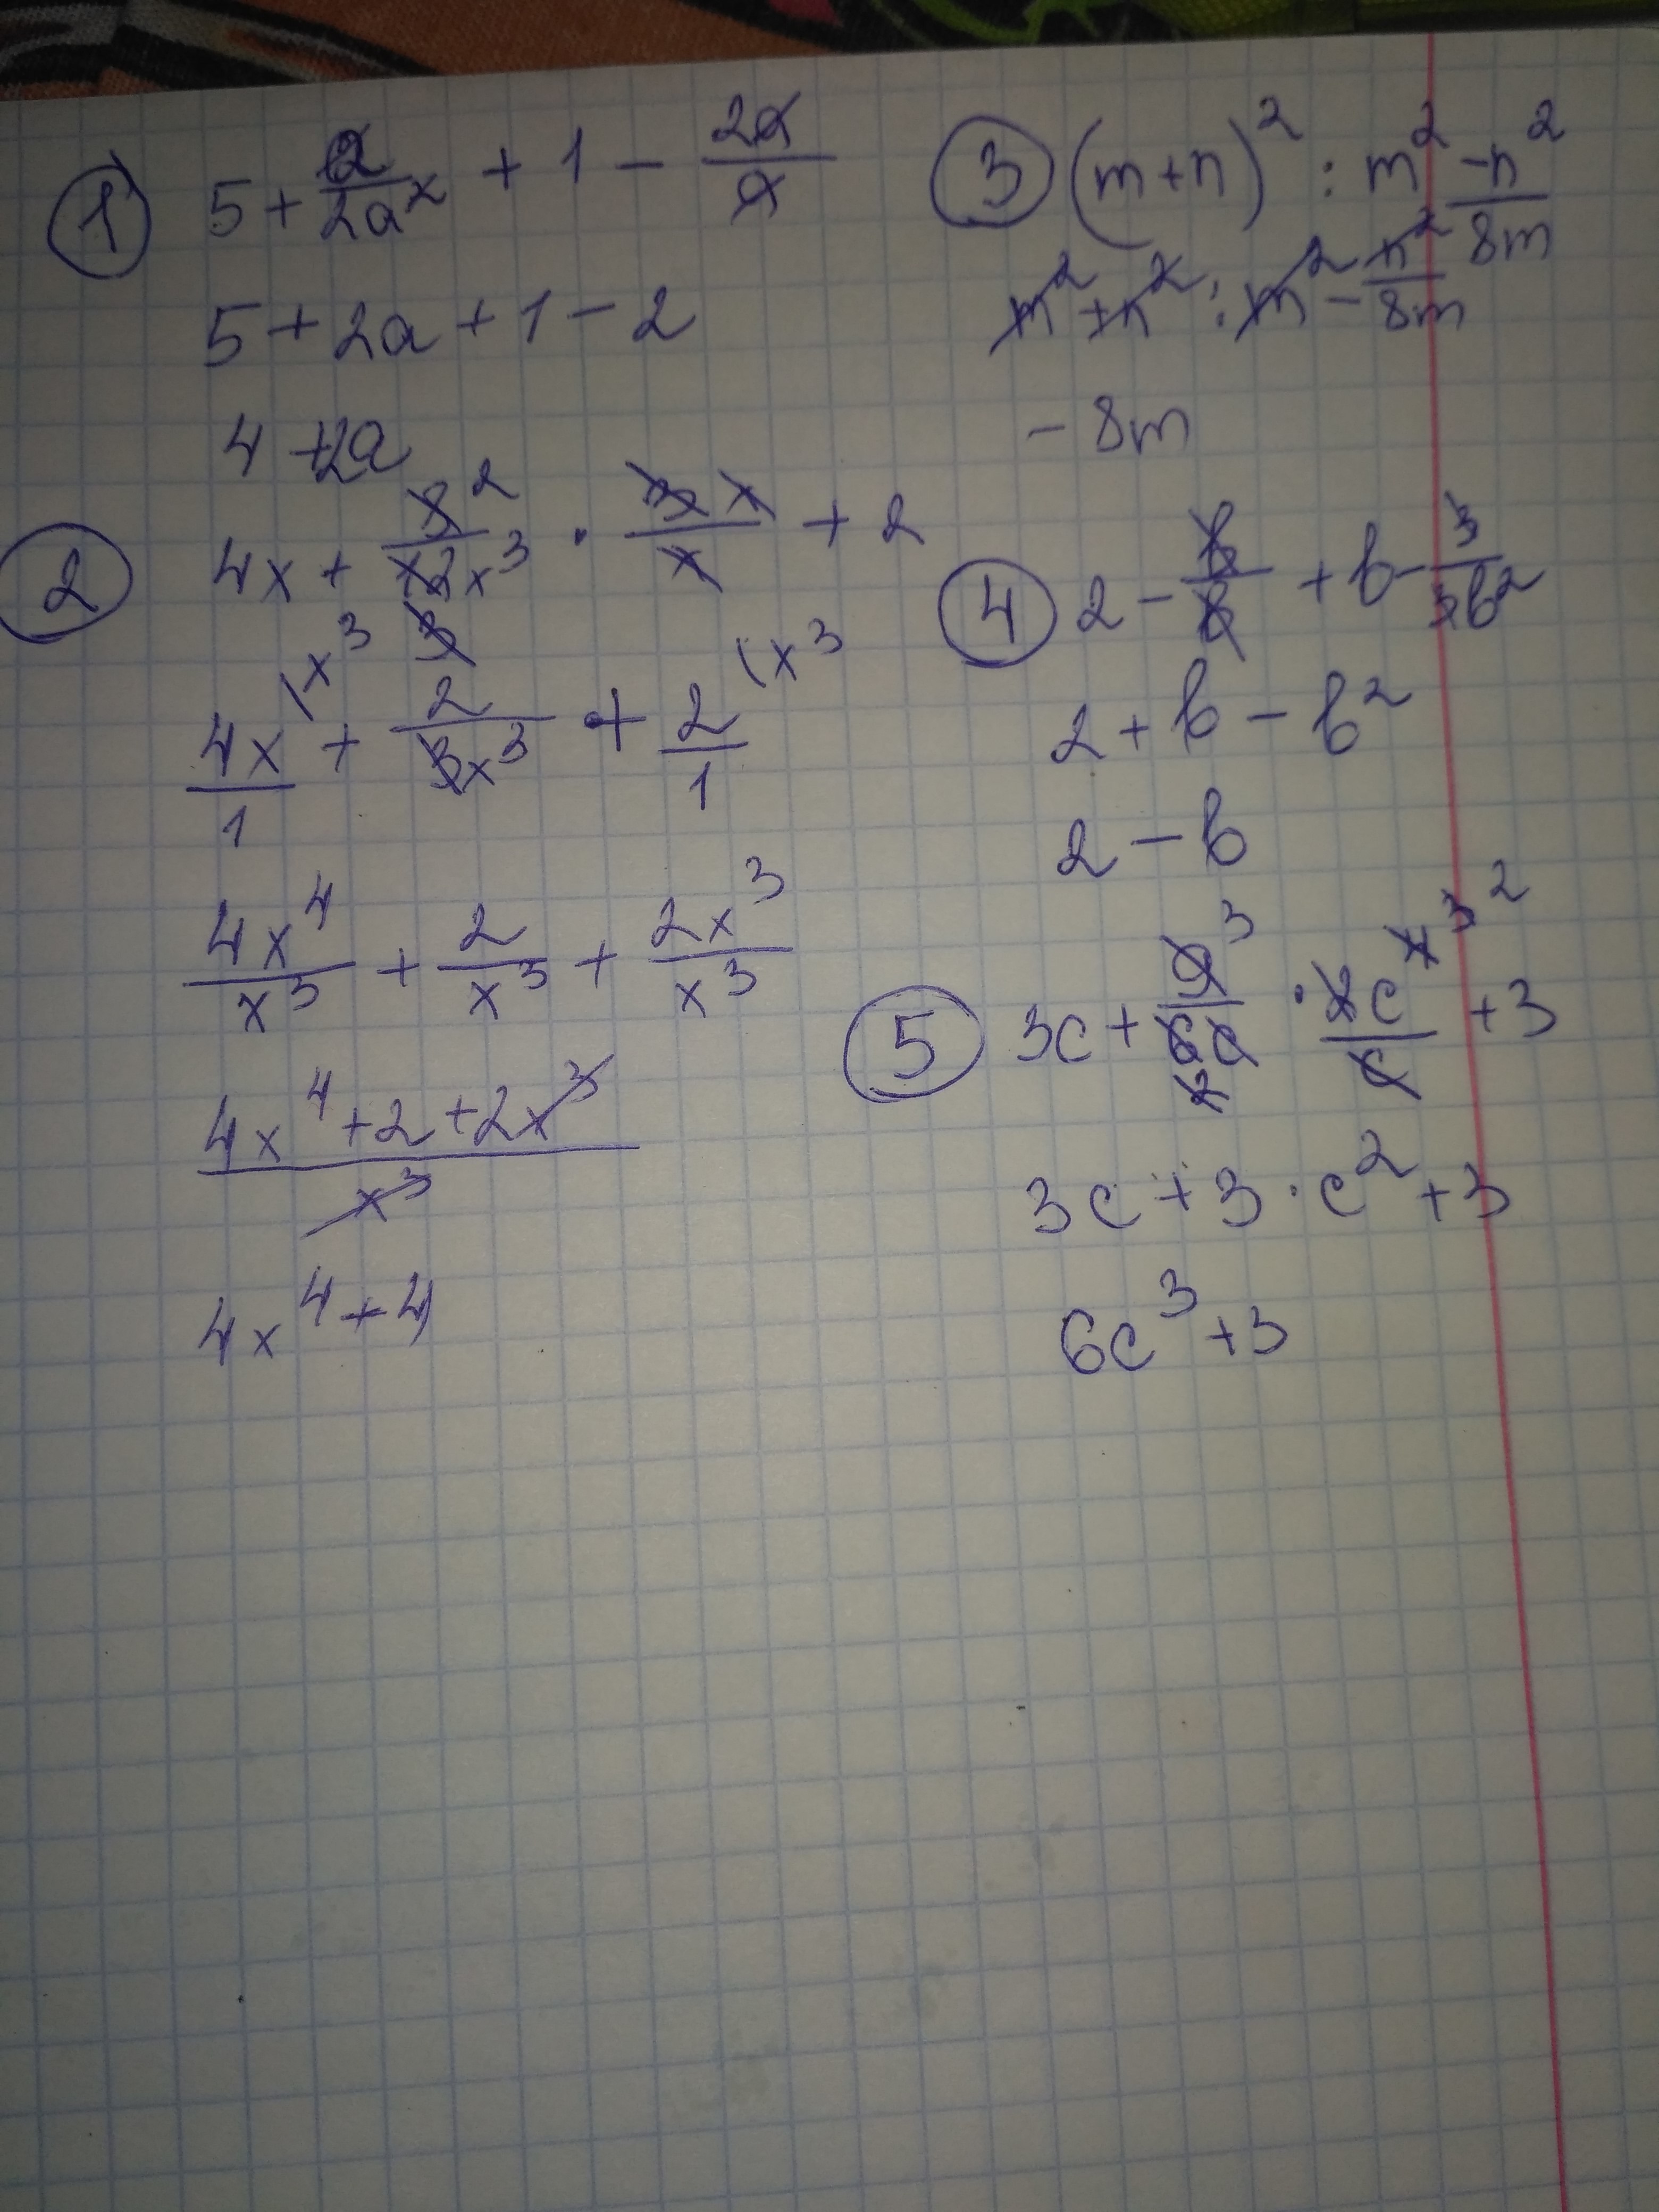 ① 5 + a/2a² + 1 - 2a/a
5 + 2a + 1 - 2
4 + 2a
② 4x + 8²/12x³ · 3x/x + 2
3
4x/1 (x³ + 2/3x³ + 2/1 (x³
4x⁴/x³ + 2/x³ + 2x³/x³
4x⁴ + 2 + 2x³/x³
4x⁴ + 4
③ (m + n)² : m² -n²/8m
m² + n² : m² - n²/8m
- 8m
④ 2 - b/b + b - 3/3b²
2 + b - b²
2 - b
⑤ 3c + 9³/6c · 2c³²/c + 3
2
3c + 3 · c² + 3
6c³ + 3